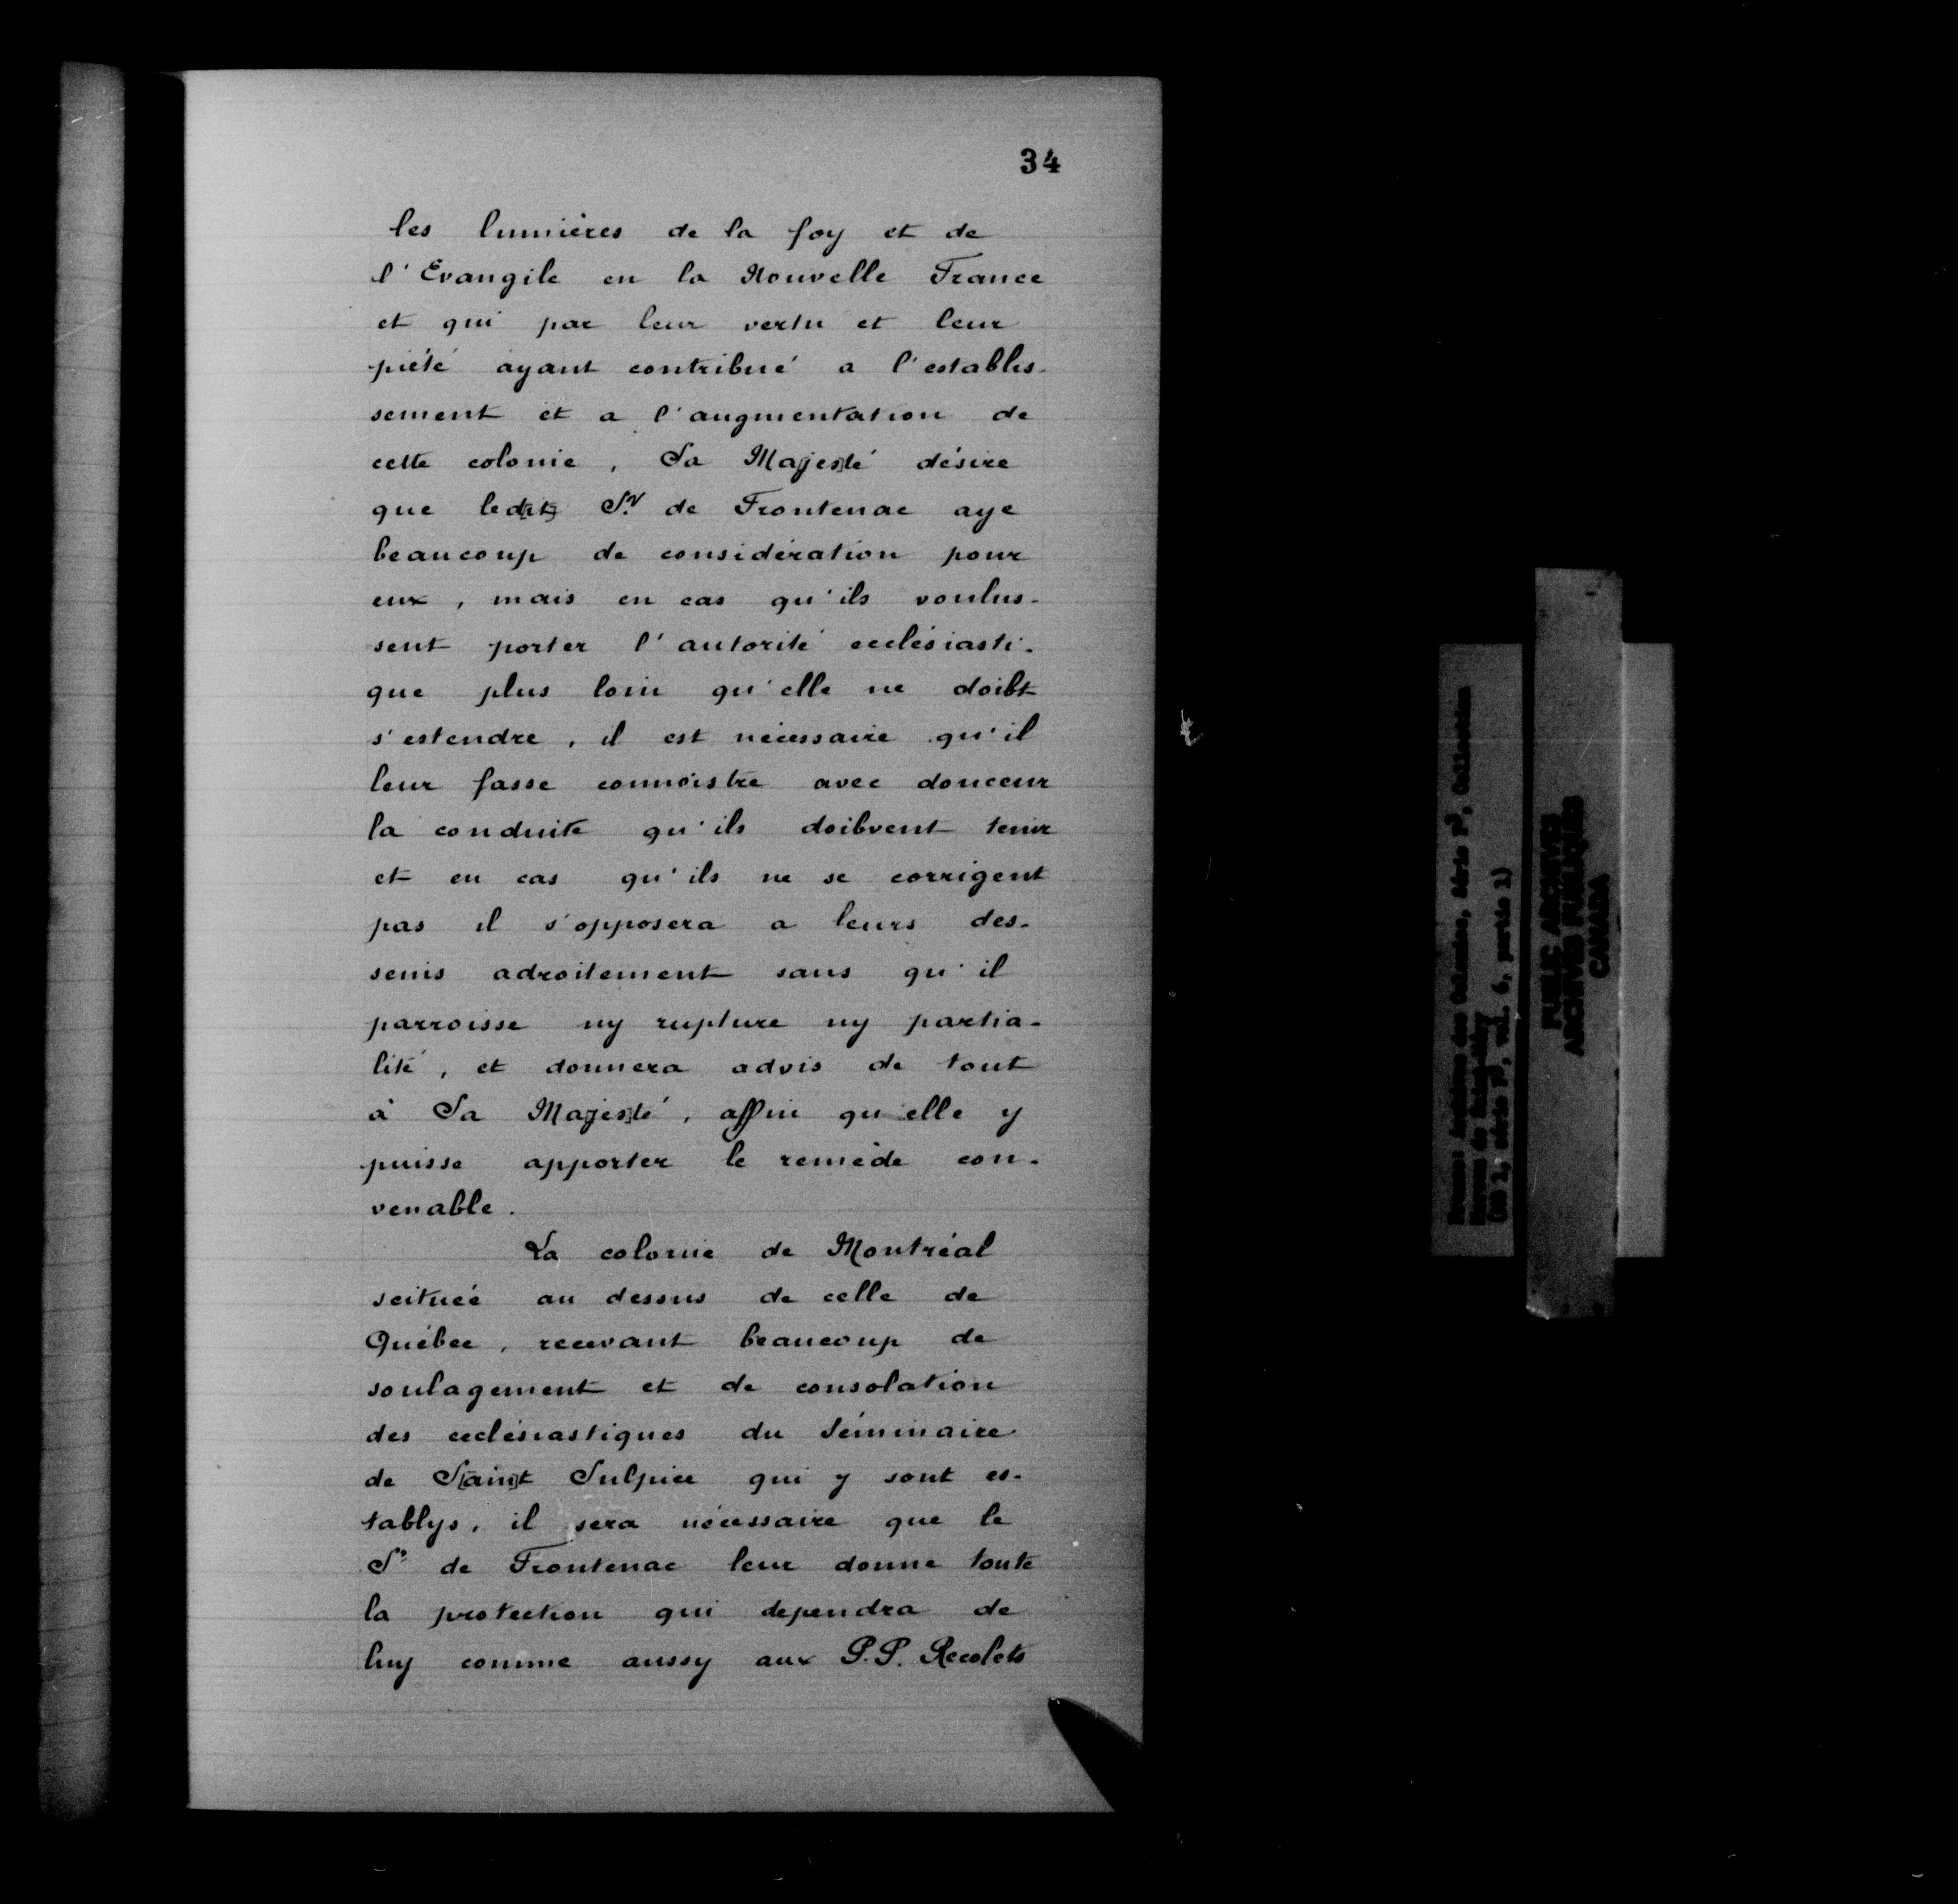 34
les lumières de la foy et de
l'Evangile en la Nouvelle France
et qui par leur vertu et leur
piété ayant contribué a l'establis-
sement et a l'augmentation de
cette colonie, Sa Maj[es]té désire
que led[it] Sr de Frontenac aye
beaucoup de considération pour
eux, mais en cas qu'ils voulus-
sent porter l'autorité ecclésiasti-
que plus loin qu'elle ne doibt
s'estendre, il est nécessaire qu'il
leur fasse connoistre avec douceur
la conduite qu'ils doibvent tenir
et en cas qu'ils ne se corrigent
pas il s'opposera a leurs des-
seins adroitement sans qu'il
parroisse ny rupture ny partia-
lité, et donnera advis de tout
à Sa Maj[es]té, affin qu'elle y
puisse apporter le remède con-
venable.
La colonie de Montréal
scituée au dessus de celle de
Québec, recevant beaucoup de
soulagement et de consolation
des ecclésiastiques du Séminaire
de S[ain]t Sulpice qui y sont es-
tablys, il sera nécessaire que le
Sr de Frontenac leur donne toute
la protection qui dependra de
luy comme aussy aux P.P. Recolets
PUBLIC ARCHIVES
ARCHIVES PUBLIQUES
CANADA
Archives des Colonies, Série F3, Collection
Moreau de
série F3, vol. 6, partie 1)